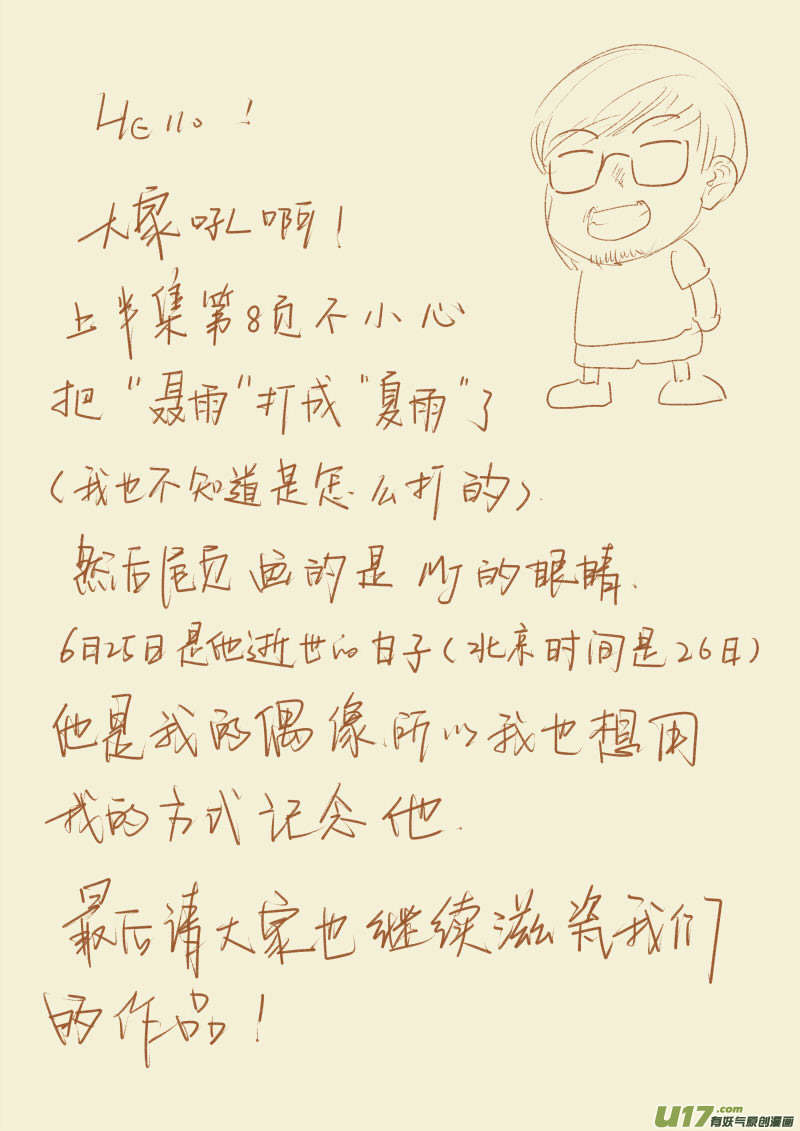 Hello!
大家吼啊!
上半集第8页不小心
把“聂雨”打成“夏雨”了
(我也不知道是怎么打的).
然后尾页画的是MJ的眼睛.
6日25日是他逝世的日子(北京时间是26日)
他是我的偶像.所以我也想用
我的方式记念他.
最后请大家也继续滋瓷我们
的作品!
U17.com
有妖气原创漫画